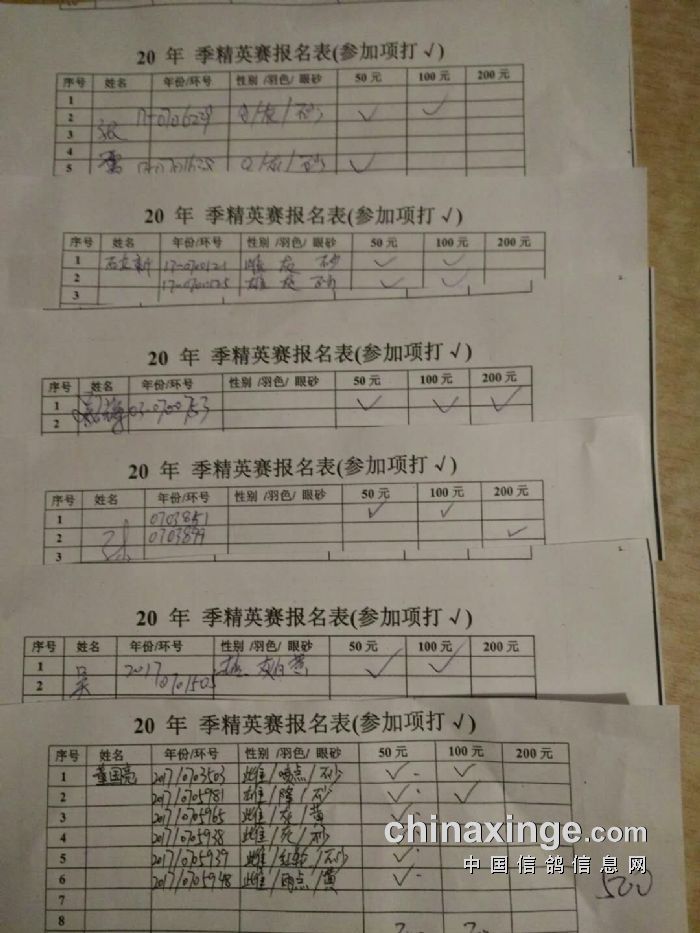 20 年 季精英赛报名表(参加项打 √)
序号 姓名 年份/环号 性别/羽色/ 眼砂 50 元 100 元 200 元
1
2 √ √
3
4
5 √
20 年 季精英赛报名表(参加项打 √)
序号 姓名 年份/环号 性别 /羽色/ 眼砂 50 元 100 元 200 元
1 雌 灰 砂 √ √
2 雄 灰 砂 √ √
3
20 年 季精英赛报名表(参加项打 √)
序号 姓名 年份/环号 性别 /羽色/ 眼砂 50 元 100 元 200 元
1 03-0700753 √ √ √
2
20 年 季精英赛报名表(参加项打 √)
序号 姓名 年份/环号 性别 /羽色/ 眼砂 50 元 100 元 200 元
1 0703851 √ √
2 0703899 √
3
20 年 季精英赛报名表(参加项打 √)
序号 姓名 年份/环号 性别 /羽色/ 眼砂 50 元 100 元 200 元
1 吴 2017 √ √
2 0701505
20 年 季精英赛报名表(参加项打 √)
序号 姓名 年份/环号 性别 /羽色/ 眼砂 50 元 100 元 200 元
1 董国亮 2017/0703503 雌/ 点/砂 √ √
2 2017/0705981 雄/ /砂 √ √
3 2017/0705965 雌/灰/黄 √
4 2017/0705938 雌/灰/砂 √
5 2017/0705939 雌/红轮/砂 √
6 2017/0705948 雌/雨点/黄 √
7
8
500
chinaxinge.com
中国信鸽信息网